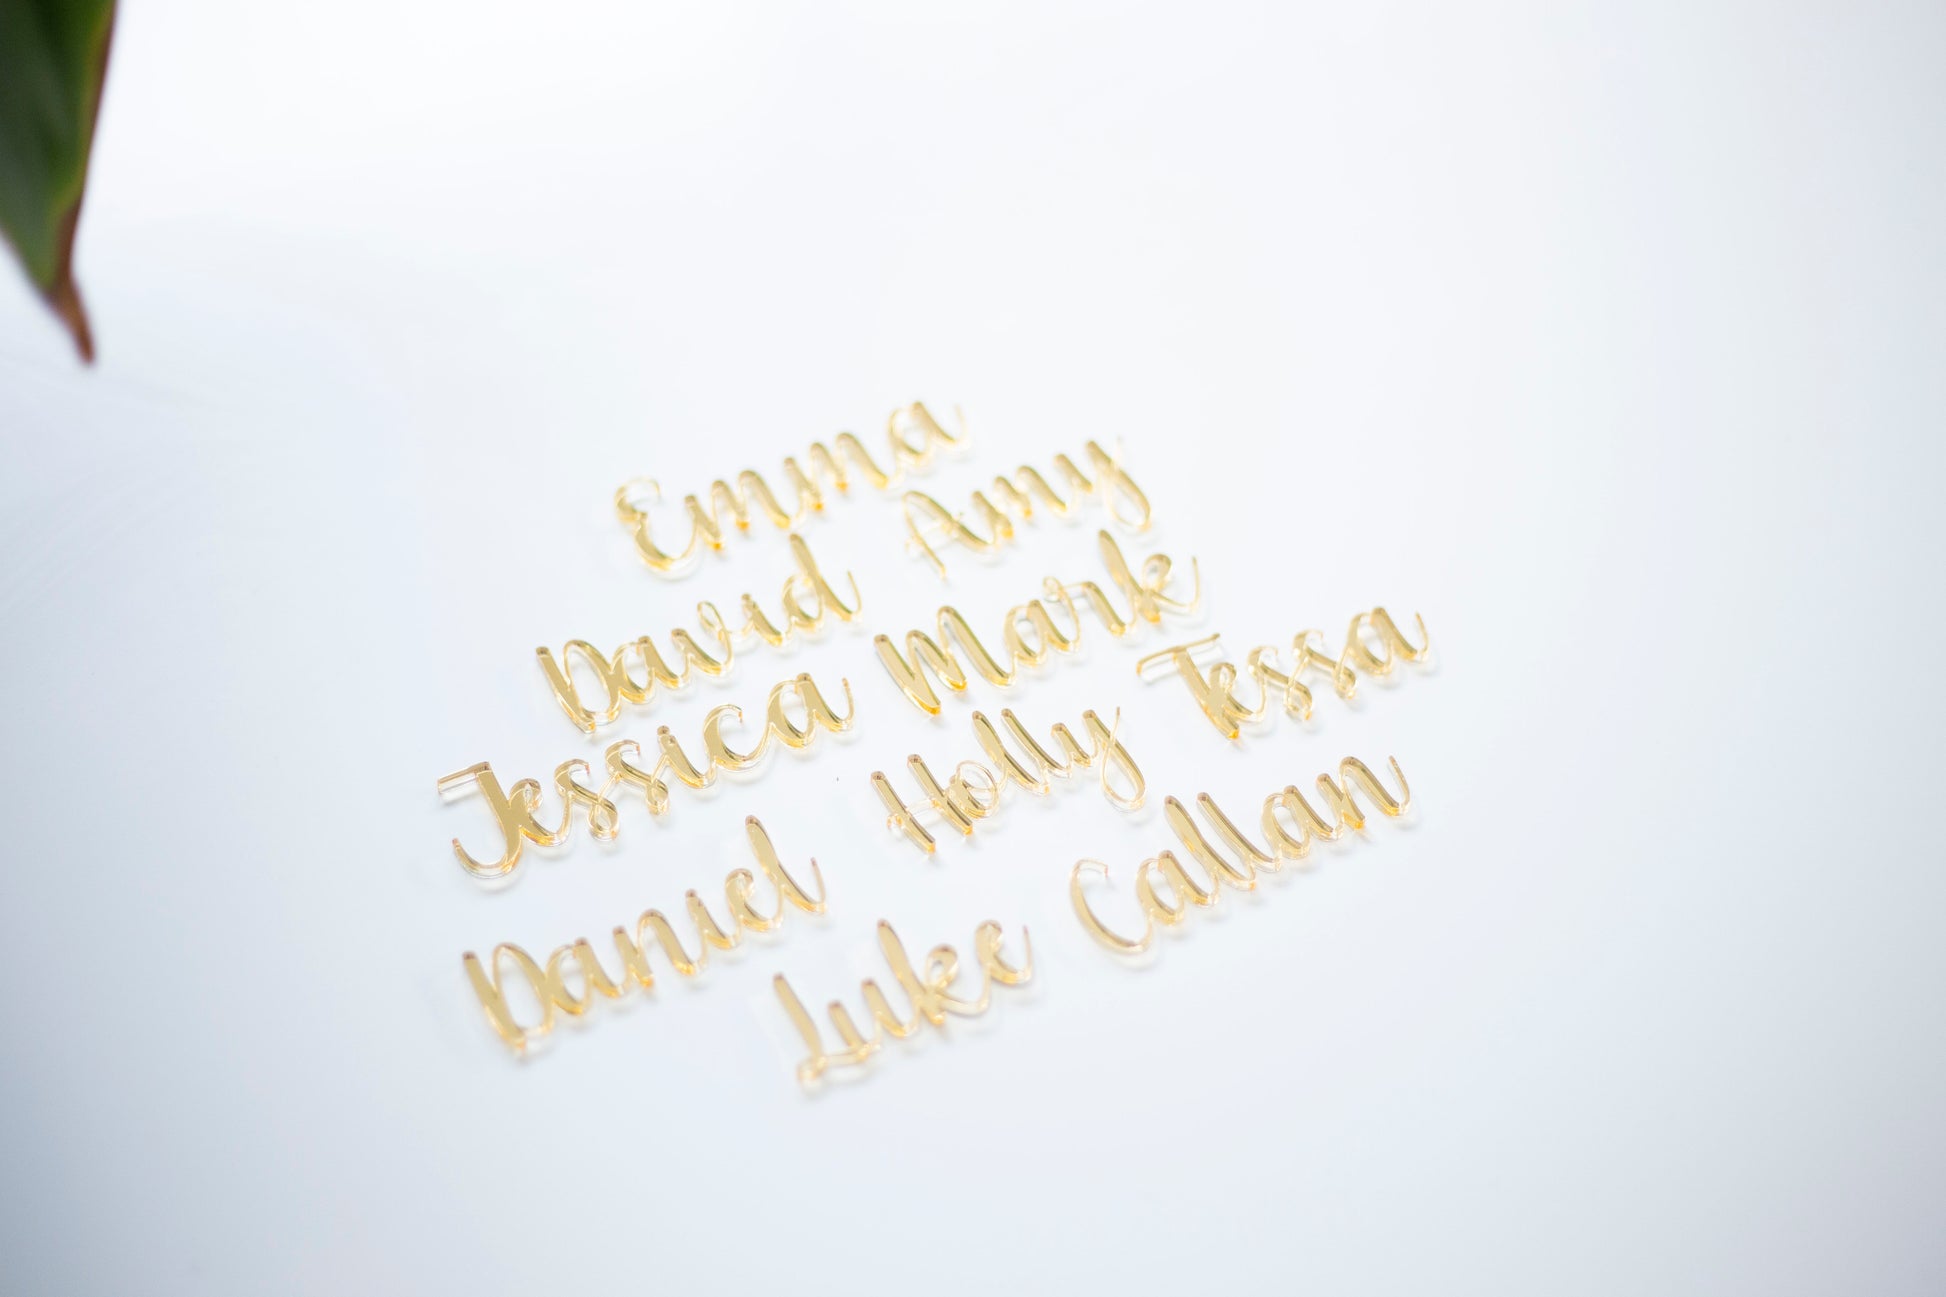 Emma
Amy
David
Mark
Jessica
Tessa
Holly
Daniel
Callan
Luke